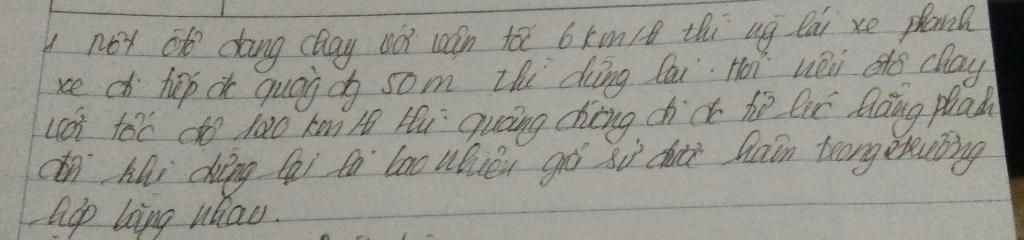 1 một ôtô đang chạy với vận tốc 6 km/h thì ng lái xe phanh
xe đi tiếp đc quãng đg 50 m thì dừng lại. Hỏi nếu ôtô chạy
với tốc độ 120 km/h thì quãng đường đi đc từ lúc hãng phanh
đến khi dừng lại là bao nhiêu giả sử lực hãm trong 2 trường
hợp bằng nhau.